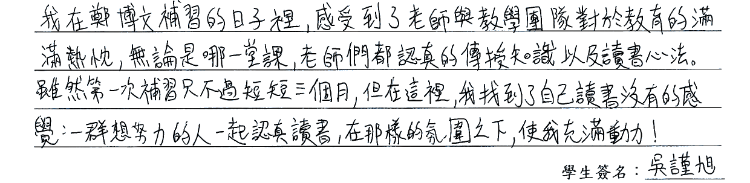 我在鄭博文補習的日子裡,感受到了老師與教學團隊對於教育的滿
滿熱忱,無論是哪一堂課,老師們都認真的傳授知識以及讀書心法。
雖然第一次補習只不過短短三個月,但在這裡,我找到了自己讀書沒有的感
覺:一群想努力的人一起認真讀書,在那樣的氛圍之下,使我充滿動力!
學生簽名:吳謹旭